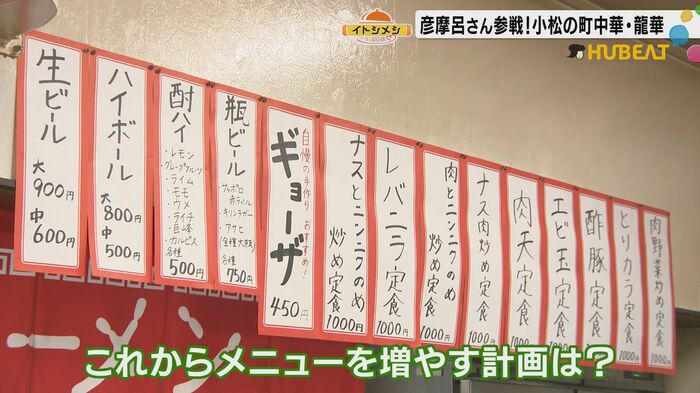 イトシメシ
彦摩呂さん参戦!小松の町中華・龍華
HUBEAT
生ビール
大
900円
中
600円
ハイボール
大
800円
中
500円
酎ハイ
・レモン
・グレープフルーツ
・ライム
・モモ
・ウメ
・ライチ
・巨峰
・カルピス
各種
500円
瓶ビール
サッポロ
赤ラベル
キリンラガー
アサヒ
(全種大瓶)
各種
750円
自慢の手作り おすすめ!
ギョーザ
450円
ナスとニンニクのめ
炒め定食
1000円
レバニラ定食
1000円
肉とニンニクのめ
炒め定食
1000円
ナス肉炒め定食
1000円
肉天定食
1000円
エビ玉定食
1000円
酢豚定食
1000円
とりカラ定食
1000円
肉野菜炒め定食
1000円
ーメン
これからメニューを増やす計画は?